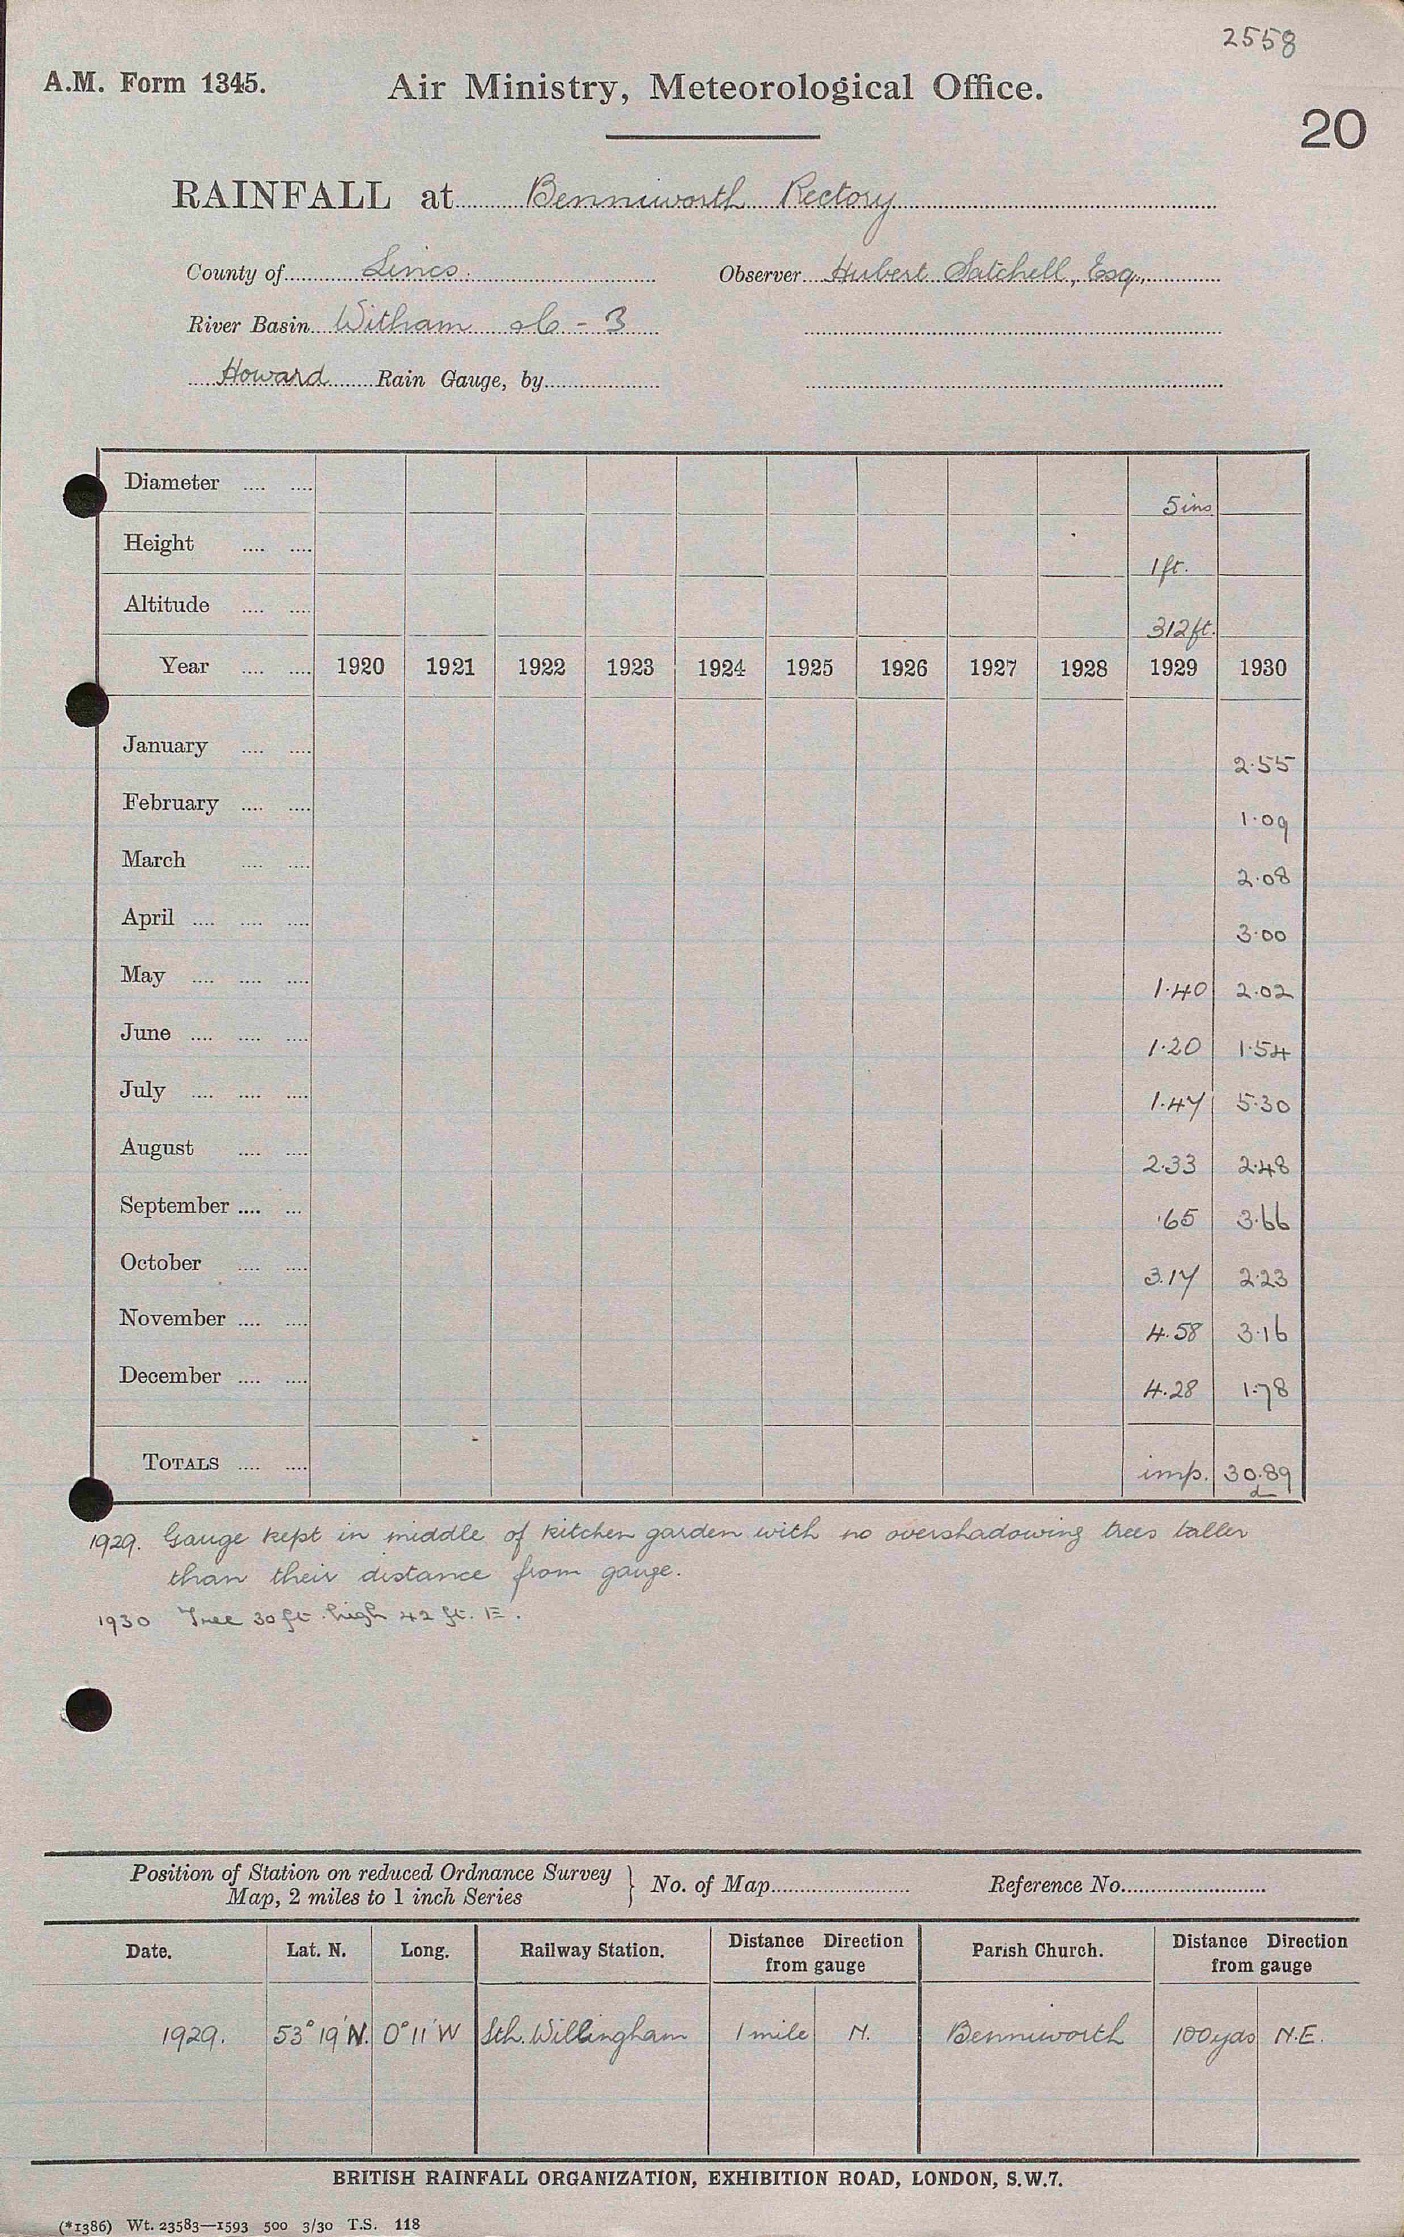 2558
A.M. Form 1345. Air Ministry, Meteorological Office.
20
RAINFALL at Benniworth Rectory
County of Lincs. Observer Hubert Satchell, Esq.,
River Basin Witham - 3
Howard Rain Gauge, by
Diameter .... .... 5 ins
Height .... .... 1 ft.
Altitude .... .... 312 ft.
Year .... .... 1920 1921 1922 1923 1924 1925 1926 1927 1928 1929 1930
January .... .... 2.55
February .... .... 1.09
March .... .... 2.08
April .... .... .... 3.00
May .... .... .... 1.40 2.02
June .... .... .... 1.20 1.54
July .... .... .... 1.47 5.30
August .... .... 2.33 2.48
September .... ... .65 3.66
October .... .... 3.17 2.23
November .... .... 4.58 3.16
December .... .... 4.28 1.78
TOTALS .... .... imp. 30.89
1929. Gauge kept in middle of kitchen garden with no overshadowing trees taller
than their distance from gauge.
1930 Tree 30 ft. high 42 ft. E.
Position of Station on reduced Ordnance Survey
Map, 2 miles to 1 inch Series } No. of Map Reference No.
Date. Lat. N. Long. Railway Station. Distance Direction from gauge Parish Church. Distance Direction from gauge
1929. 53° 19' N. 0° 11' W Sth. Willingham 1 mile N. Benniworth 100 yds N.E.
BRITISH RAINFALL ORGANIZATION, EXHIBITION ROAD, LONDON, S.W.7.
(*1386) Wt. 23583—1593 500 3/30 T.S. 118